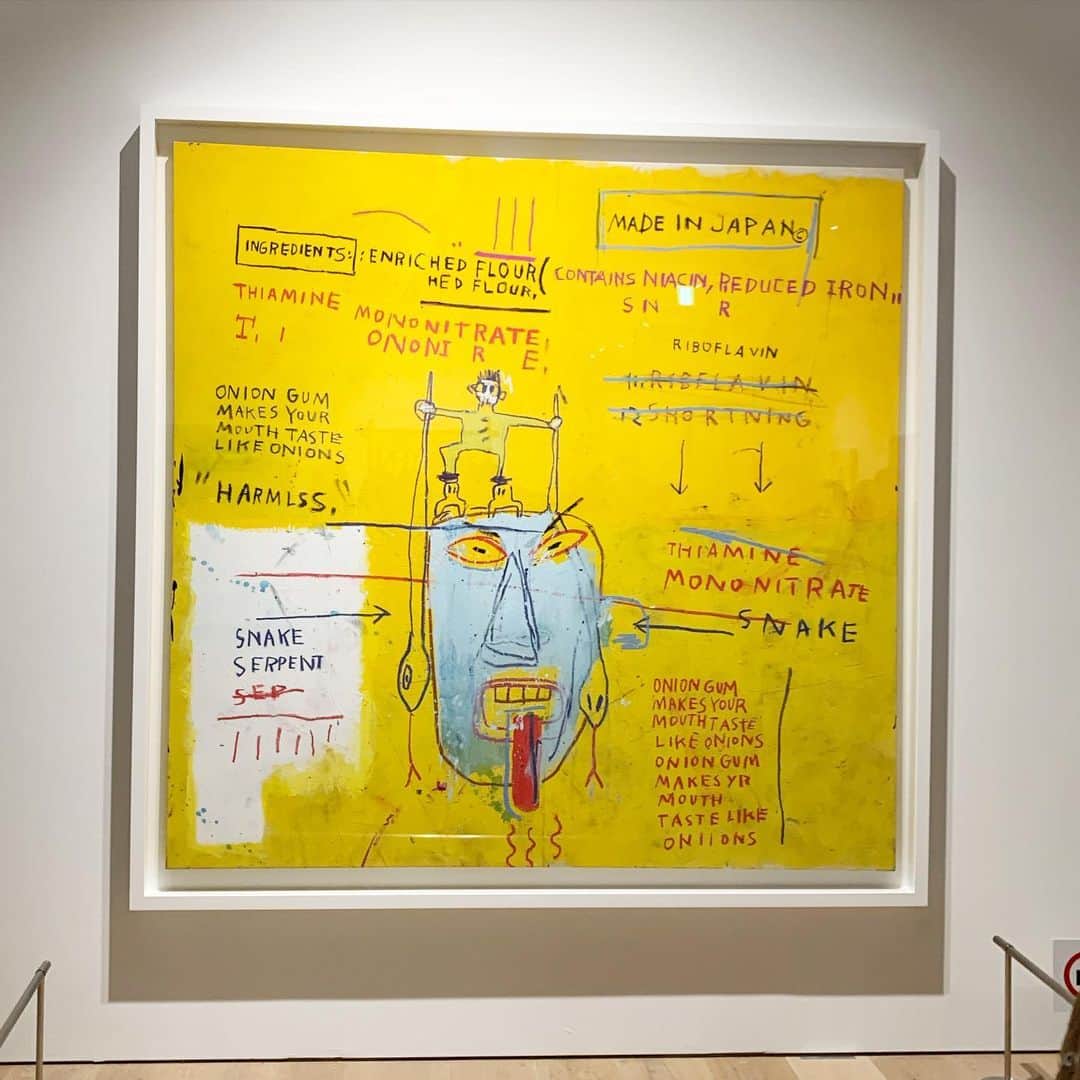 MADE IN JAPAN©
INGREDIENTS: : ENRICHED FLOUR (CONTAINS NIACIN, REDUCED IRON,,
HED FLOUR,
S N R
THIAMINE MONONITRATE,
T, I ONONI R E,
RIBOFLAVIN
11. RIBFLAVIN
12 SHORTNING
ONION GUM
MAKES YOUR
MOUTH TASTE
LIKE ONIONS
"HARMLSS,"
THIAMINE
MONONITRATE
SNAKE
SNAKE
SERPENT
SEP
ONION GUM
MAKES YOUR
MOUTH TASTE
LIKE ONIONS
ONION GUM
MAKES YR
MOUTH
TASTE LIKE
ONIIONS